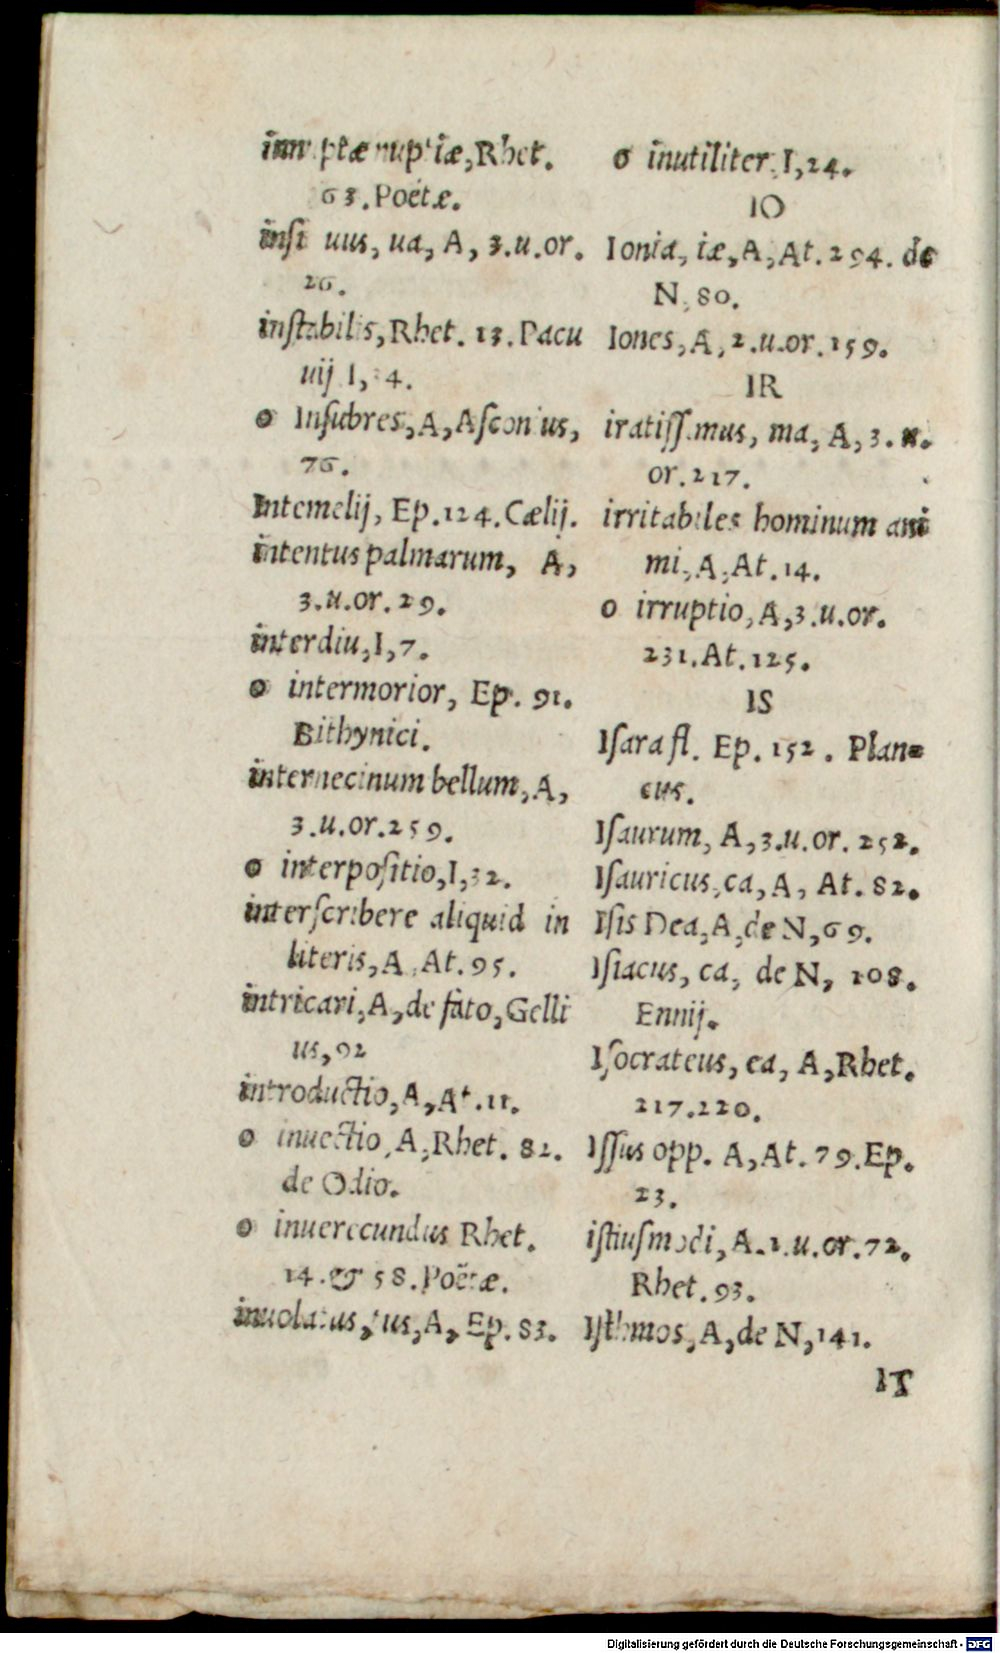 innuptæ nuptiæ, Rhet.
63. Poëtæ.
uus, ua, A, 3.u.or.
26.
inſtabilis, Rhet. 13. Pacu
uij I, 4.
o Inſubres, A, Aſconius,
76.
Intemelij, Ep. 124. Cælij.
intentus palmarum, A,
3.u.or. 29.
interdiu, I, 7.
o intermorior, Ep. 91.
Bithynici.
internecinum bellum, A,
3.u.or. 259.
o interpoſitio, I, 32.
interſcribere aliquid in
literis, A, At. 95.
intricari, A, de fato, Gelli
us, 92
introductio, A, At. 11.
o inuectio, A, Rhet. 82.
de Odio.
o inuerecundus Rhet.
14. & 58. Poëtæ.
inuolatus, tus, A, Ep. 83.
o inutiliter, I, 24.
IO
Ionia, iæ, A, At. 294. de
N, 80.
Iones, A, 2.u.or. 159.
IR
iratiſſimus, ma, A, 3.u.
or. 217.
irritabiles hominum ani
mi, A, At. 14.
o irruptio, A, 3.u.or.
231. At. 125.
IS
Iſara fl. Ep. 152. Plan=
cus.
Iſaurum, A, 3.u.or. 252.
Iſauricus, ca, A, At. 82.
Iſis Dea, A, de N, 69.
Iſiacus, ca, de N, 108.
Ennij.
Iſocrateus, ea, A, Rhet.
217.220.
Iſſus opp. A, At. 79. Ep.
23.
iſtiuſmodi, A. 1.u.or. 72.
Rhet. 93.
Iſthmos, A, de N, 141.
IT
Digitalisierung gefördert durch die Deutsche Forschungsgemeinschaft - DFG